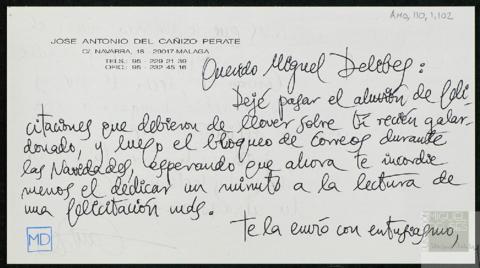 AMD, 110, 1, 102
JOSE ANTONIO DEL CAÑIZO PERATE
C/. NAVARRA, 16 - 29017 MALAGA
TELS.: 95 - 229 21 39
OFIC.: 95 - 232 45 16
Querido Miguel Delibes:
Dejé pasar el aluvión de feli
citaciones que debieron de llover sobre ti recién galar
donado, y luego el bloqueo de Correos durante
las Navidades, esperando que ahora te incordie
menos el dedicar un minuto a la lectura de
una felicitación más.
te la envío con entusiasmo,
MD
MIGUEL